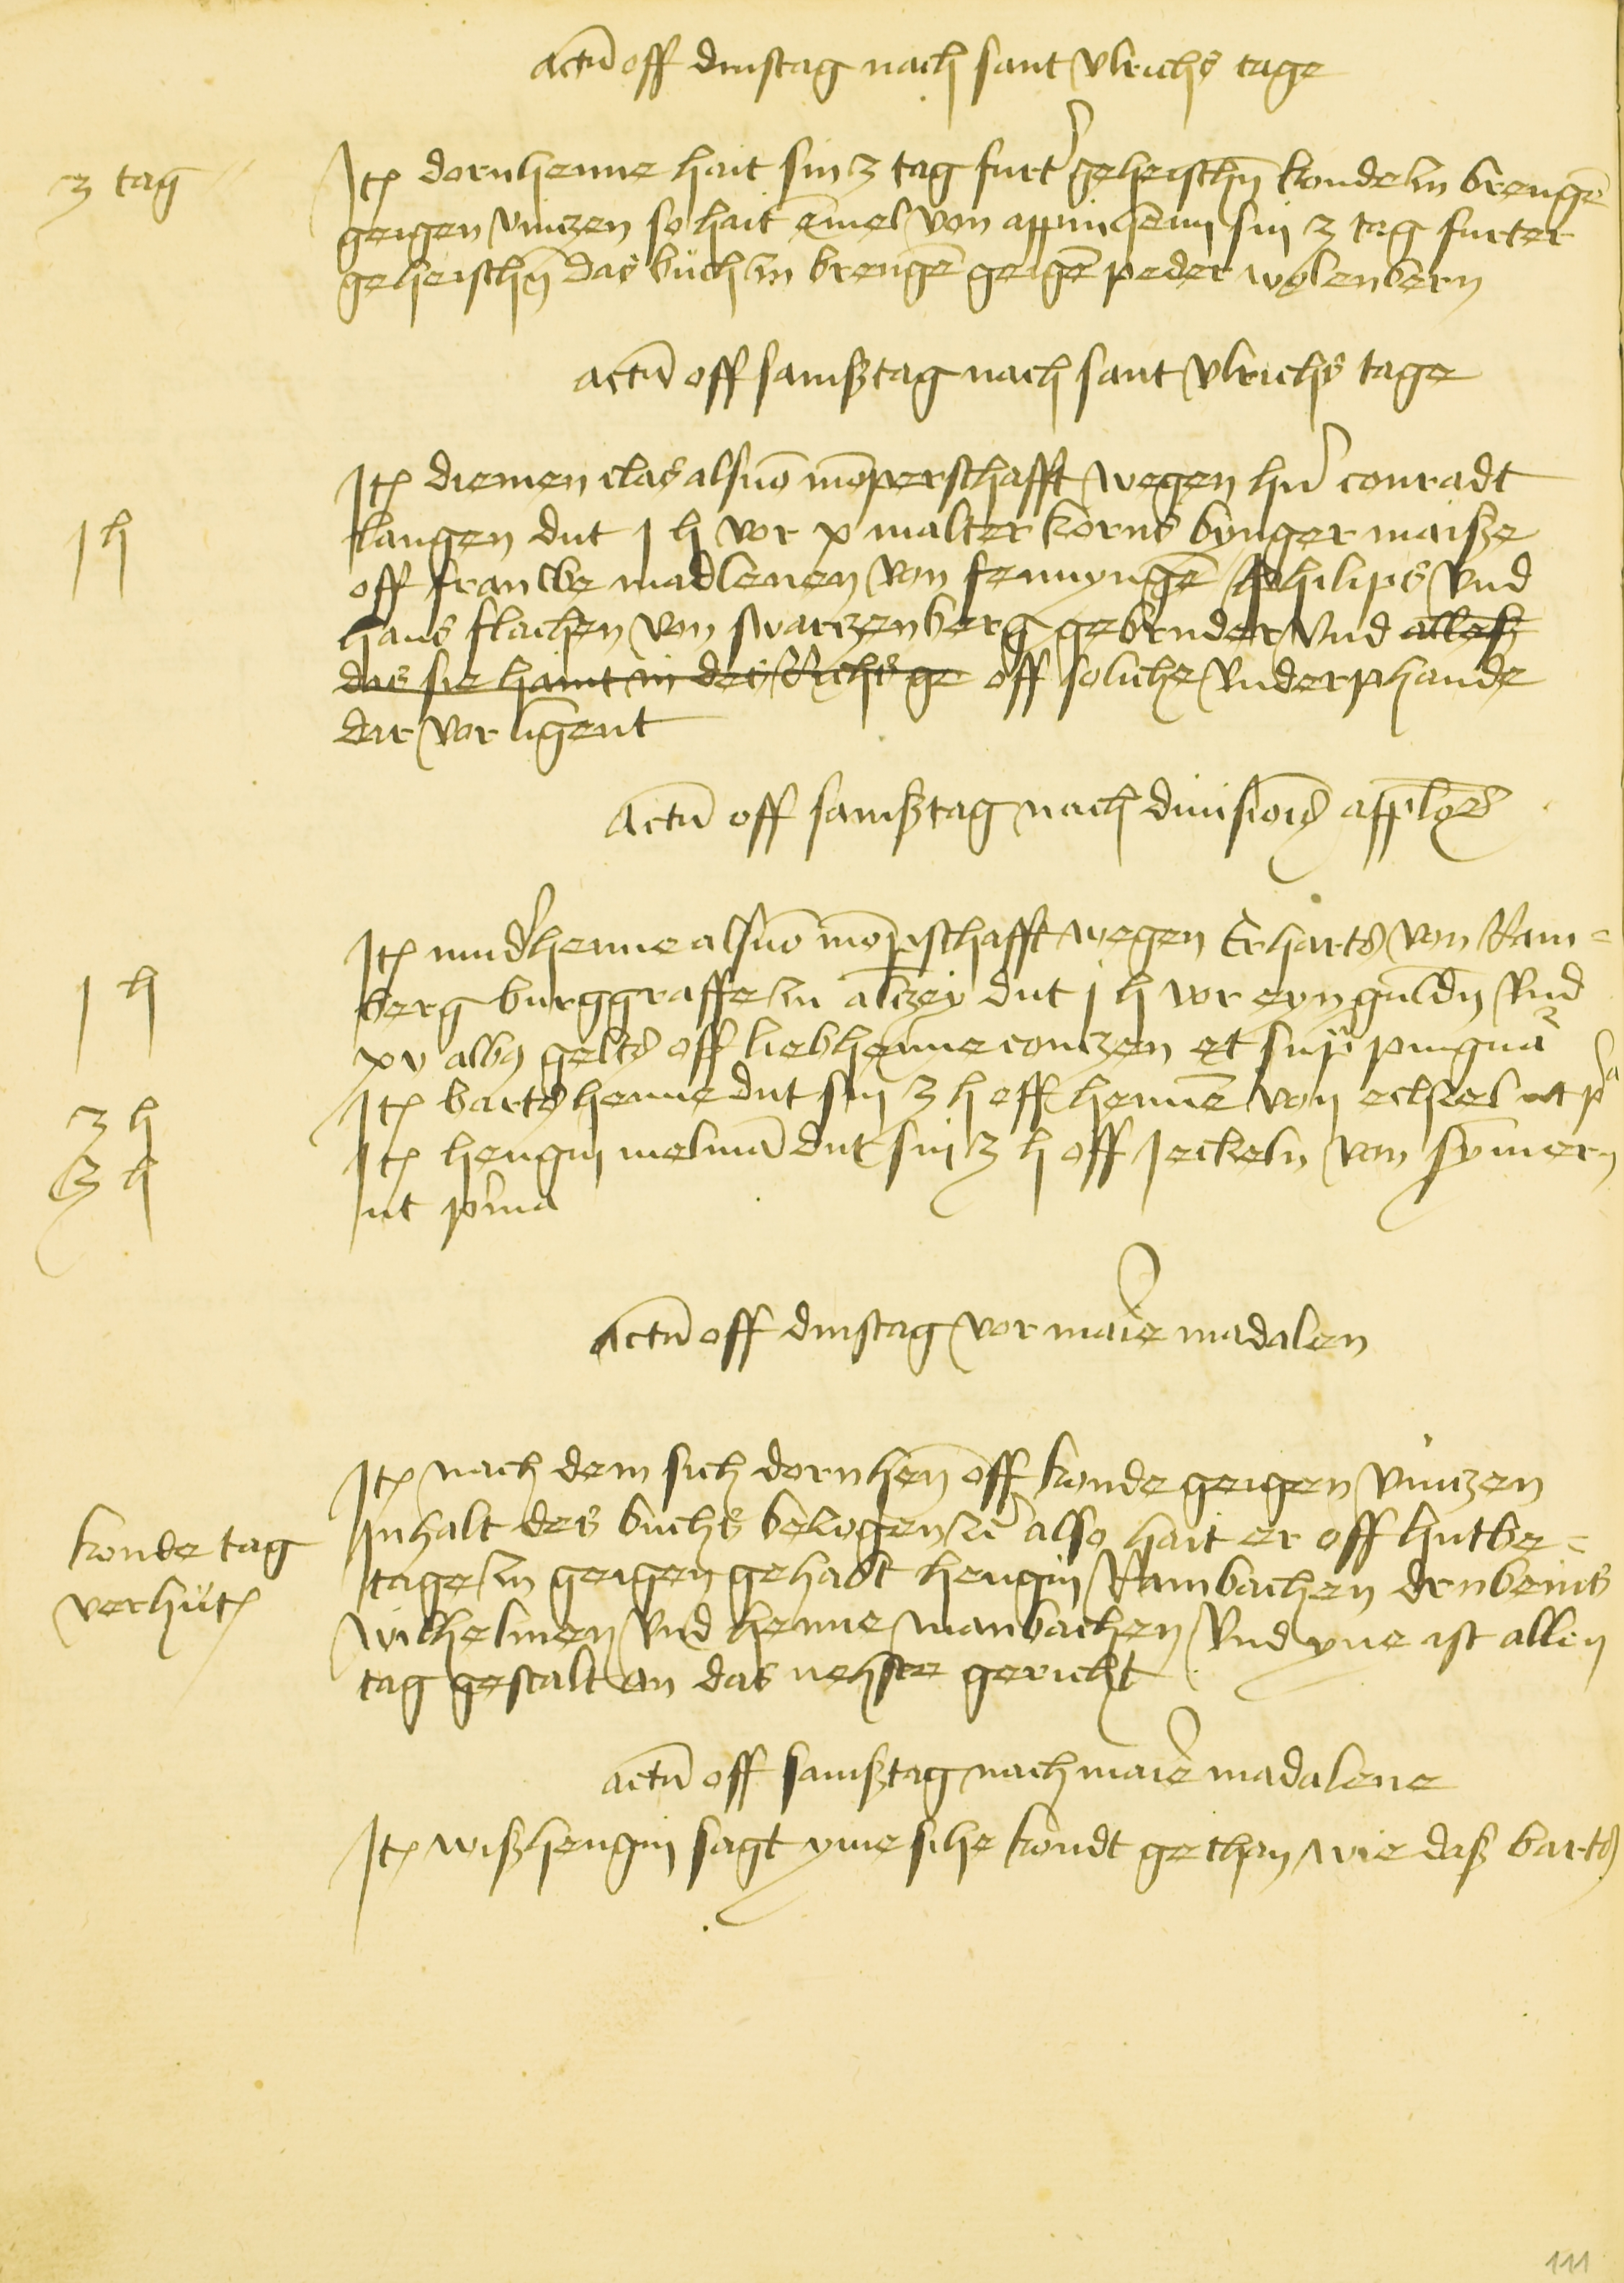 actu̅ off dinstag nach sant vlrichs tage
3 tag
Jt̅ dornhenne hait sin 3 tag furt͛ geheisch̅n konde in brenge̅
geigen vinzen so hait emel von appinheim sin 3 tag furter
geheisch̅n das büch in brenge̅ geige̅ peder wolenbern
actu̅ off samßtag nach sant vlrichs tage
1 h
Jt̅ diemen clas als jn̅ mo̅perschafft wegen h͛n conradt
langen dut 1 h vor x malter korns bynger maisze
off frauwe madlenen von fennynge̅ philips vnd
hans flachen von swarczenberg gebruder vnd alleß
das sie haint in des richs ge off soliche vnderphande
dar vor ligent
Actu̅ off samßtag nach diuisio̅is app̅l̅o̅s
1 h
Jt̅ mud͛henne als jn̅ mo̅p̅schafft wegen Erharts von Ram=
berg burggraffe in alczey dut j h vor eyn guld̅n vnd
xv alb9 gelts off liebhenne conczen et sup̅ pingn̅a
3 h
Jt̅ bartshenne dut sin 3 h off henne̅ von echsel ut pa
3 h
Jt̅ hengin melma̅ dut sin 3 h off Jeckeln von symern
ut p͛ma
actu̅ off dinstag vor mar͛ie madalen
konde tag
verhüt̅
Jt̅ nach dem sich dornhen̅ off konde geigen vinczen
Inhalt des buchs beczogen ꝛc̅ also hait er off hutbe=
tage in geigen gehabt hengin Rambachen drubeins
wilhelmen vnd henne manbachen vnd yne ist allen
tag gestalt an das nehste gericht
actu̅ off samßtag nach mar͛ie madalene
Jt̅ wißhengin sagt yme sihe kondt gethan wie daß barts
111